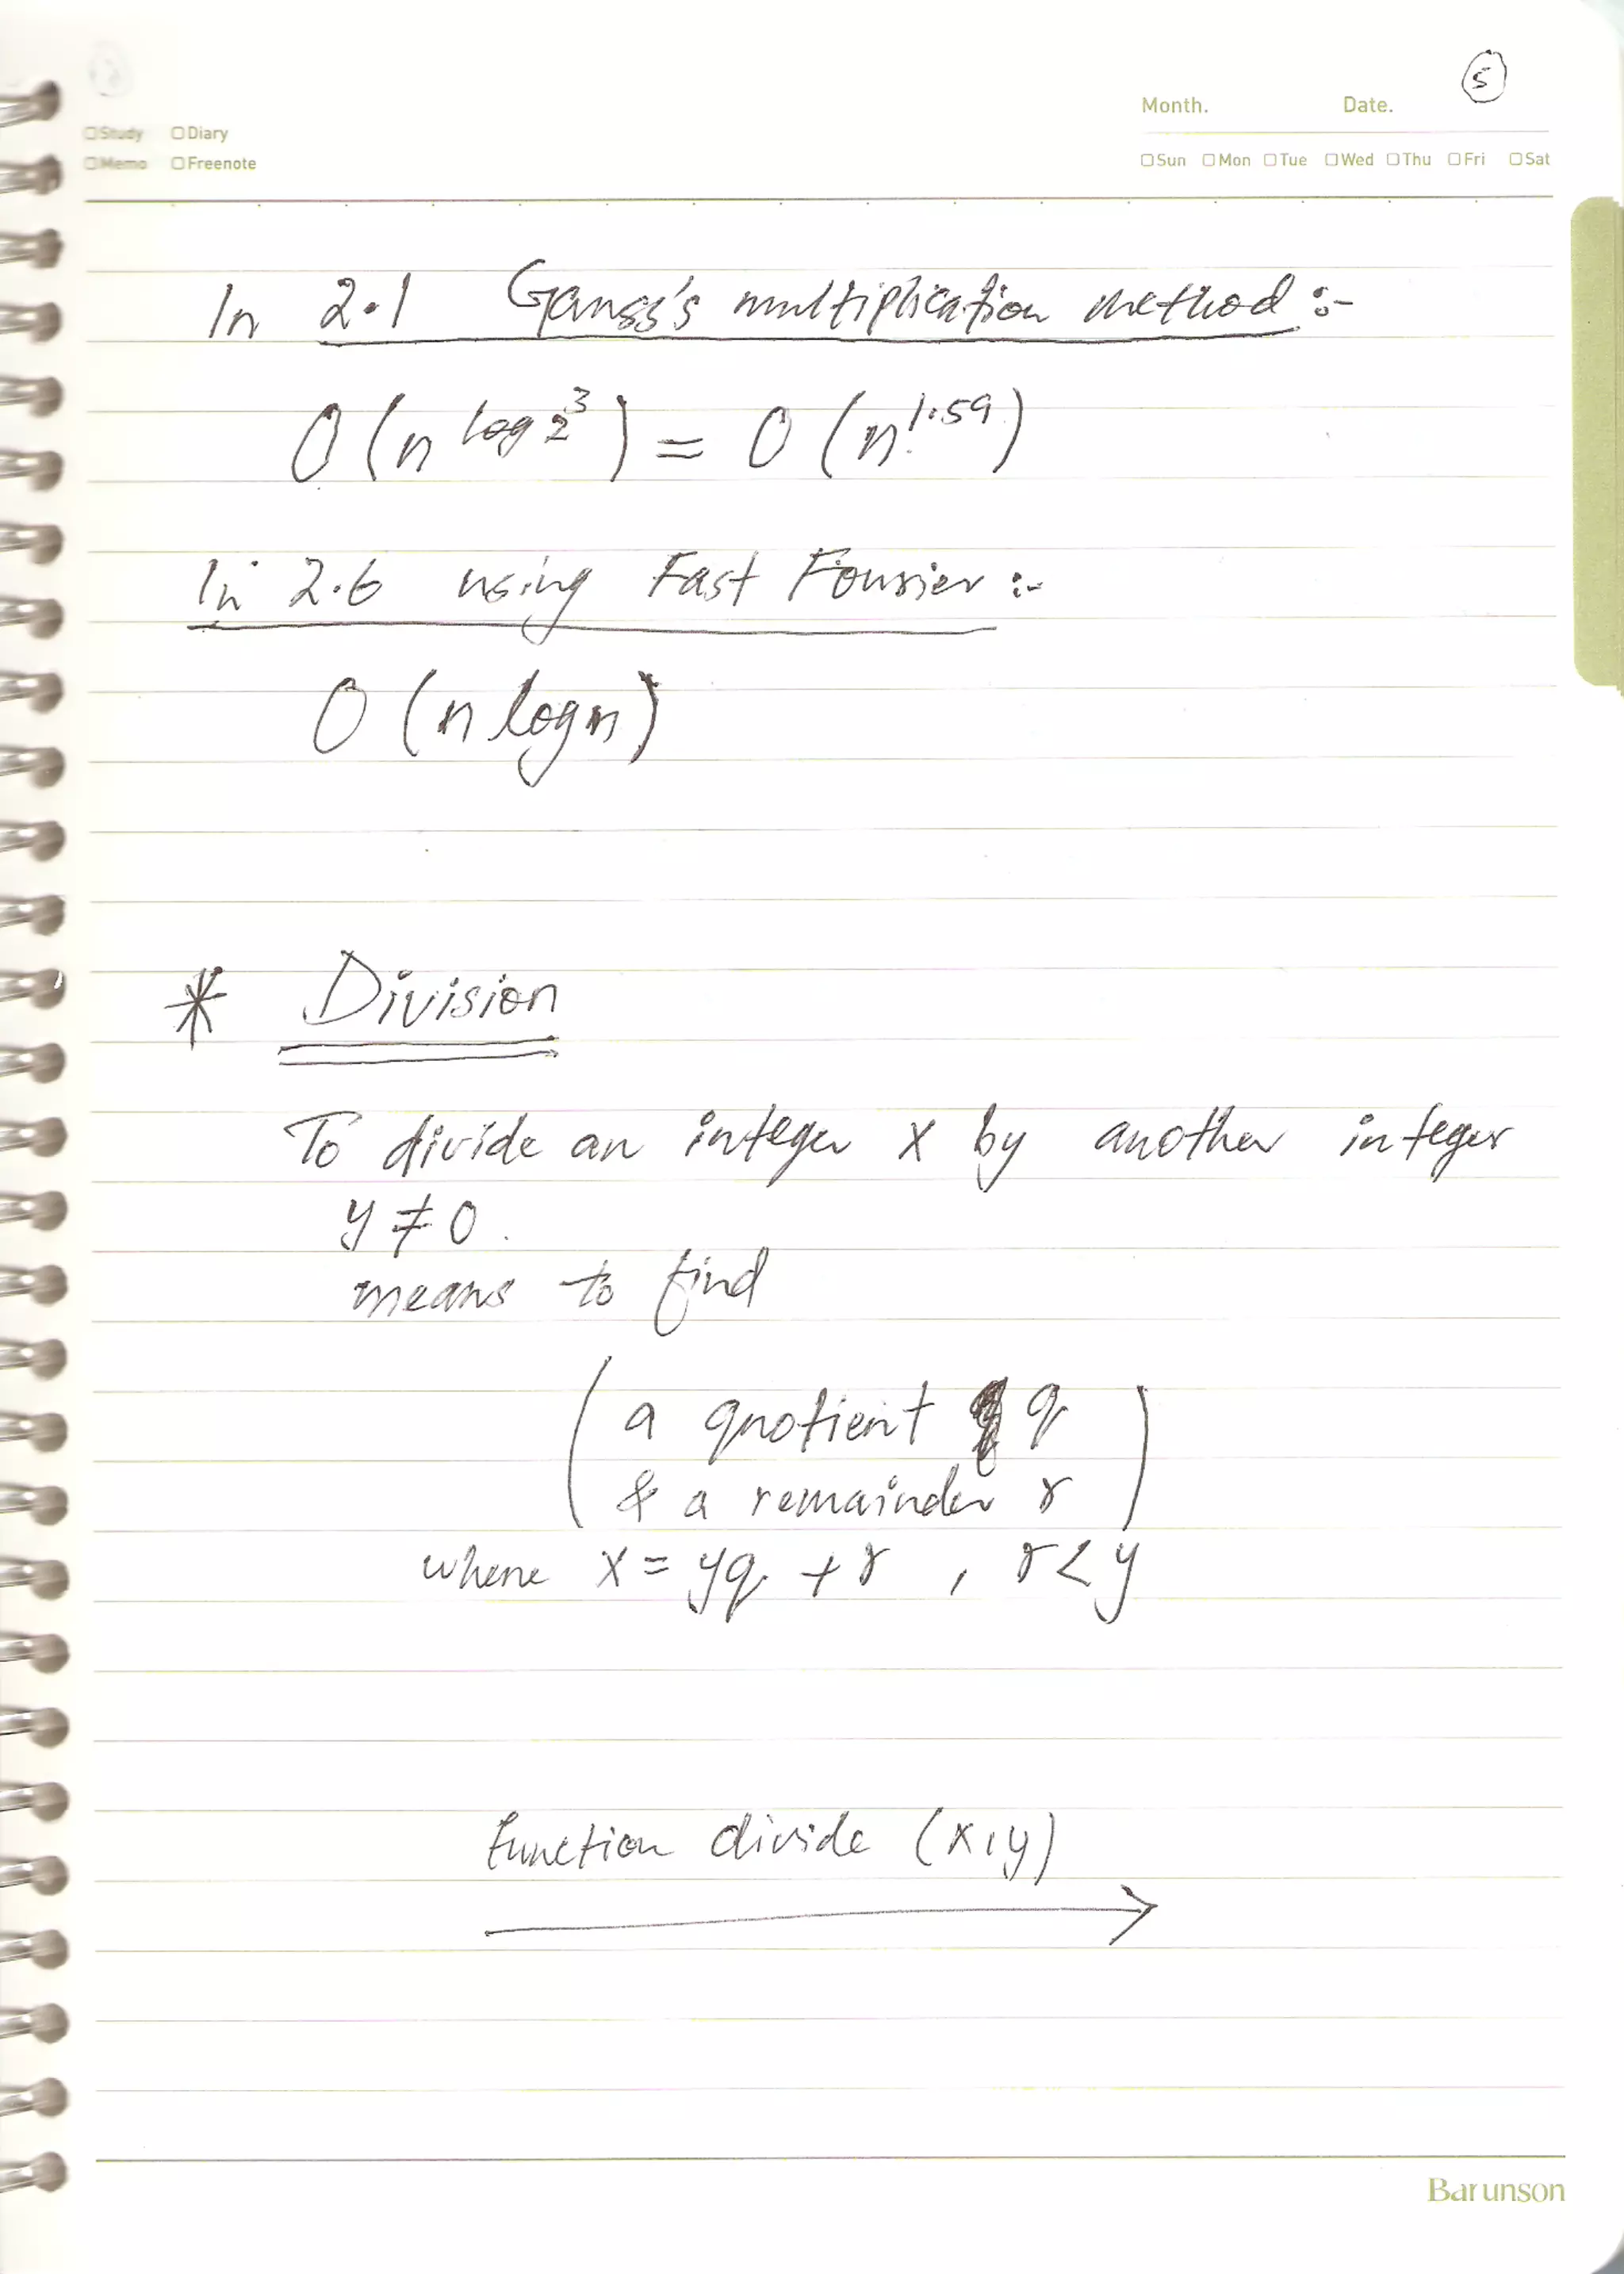 5
Month. Date.
Study Diary
Memo Freenote
Sun Mon Tue Wed Thu Fri Sat
In 2.1 Gauss's multiplication method :-
O(n^log 2^3) = O(n^1.59)
In 2.6 using Fast Fourier :-
O(n log n)
* Division
To divide an integer x by another integer
y ≠ 0.
means to find
( a quotient q
& a remainder r )
where x = yq + r , r < y
function divide (x,y)
→
Barunson